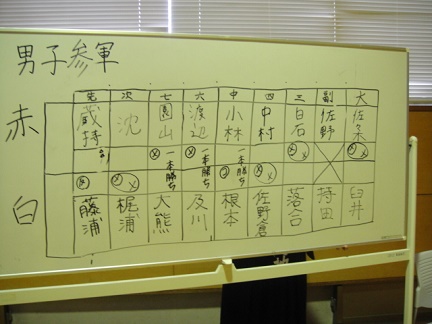 男子参軍
先 次 七 六 中 四 三 副 大
赤 蔵持 沈 園山 渡辺 小林 中村 白石 佐野 佐久
一本勝ち 一本勝ち 一本勝ち
白 藤浦 梶浦 大熊 及川 根本 佐野倉 落合 持田 臼井